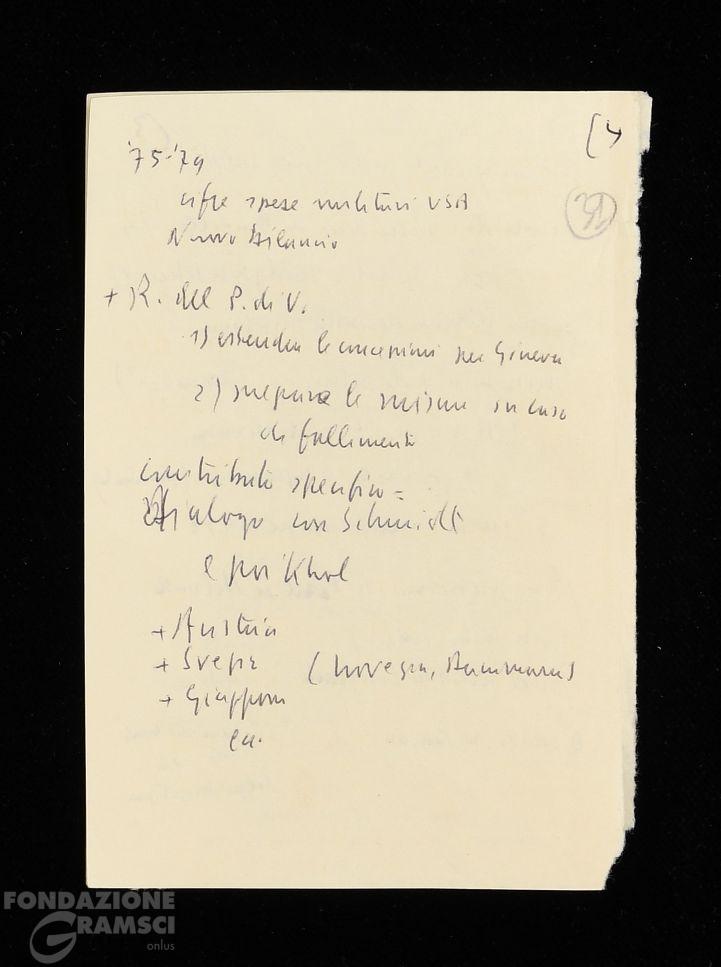 (4
'75-'79
cifre spese militari USA
32
Nuovo bilancio
+ R. del P. di V.
1) estendere le concessioni per Ginevra
2) prepara le misure in caso
di fallimento
contributo specifico =
Dialogo con Schmidt
e poi Khol
+ Austria
+ Svezia (Norvegia, Danimarca)
+ Giappone
ecc.
FONDAZIONE
GRAMSCI
onlus